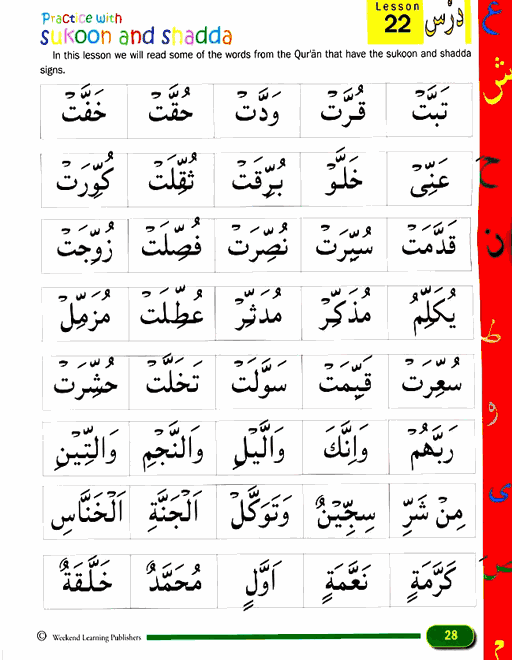 Practice with
sukoon and shadda
Lesson
22
دَرْس
In this lesson we will read some of the words from the Qur'ān that have the sukoon and shadda
signs.
تَبَّتْ قُرَّتْ وَدَّتْ حُقَّتْ خَفَّتْ
عَنِّىْ خَلَّوْ بُرِّقَتْ ثُقِّلَتْ كُوِّرَتْ
قَدَّمَتْ سُيِّرَتْ نُصِّرَتْ فُصِّلَتْ زُوِّجَتْ
يُكَلِّمُ مُذَكِّرْ مُدَثِّرْ عُطِّلَتْ مُزَمِّلْ
سُعِّرَتْ قَيِّمَتْ سَوَّلَتْ تَخَلَّتْ حُشِّرَتْ
رَبَّهُمْ وَاِنَّكَ وَالَّيْلِ وَالنَّجْمِ وَالتِّيْنِ
مِنْ شَرِّ سِجِّيْنٌ وَتَوَكَّلْ اَلْجَنَّةِ اَلْخَنَّاسِ
كَرَّمَةٍ نَعَّمَةٍ اَوَّلٍ مُحَمَّدٌ خَلَّقَةٌ
© Weekend Learning Publishers
28